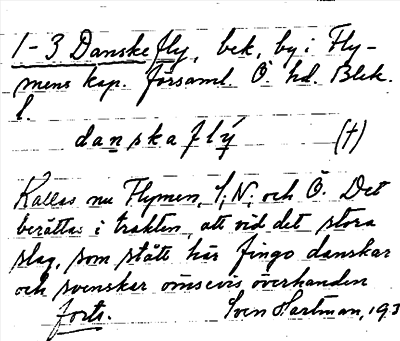 1-3 Danskefly, bek, by i Fly-
mens kap. församl. Ö. hd. Blek.
l.
danskaflý (†)
Kallas nu Flymen, S, N, och Ö. Det
berättas i trakten, att vid det stora
slag, som stått här fingo danskar
och svenskar ömsevis överhanden
forts. Sven Hartman, 193